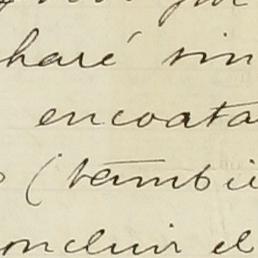 haré sin
encoata
(tambié
oncluir el